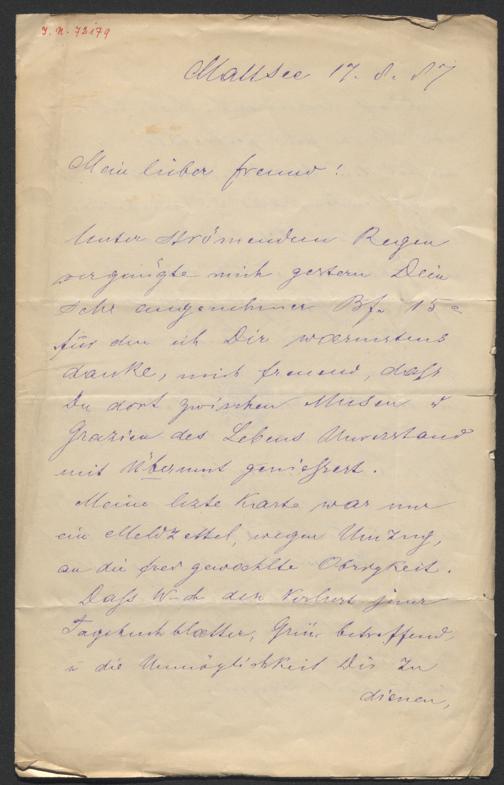 J. N. 73179
Mattsee 17. 8. 87
Mein lieber Freund!
Unter strömendem Regen
vergnügte mich gestern Dein
sehr angenehmer Bf. 15 =
für den ich Dir wærmstens
danke, mich freuend, dass
Du dort zwischen Musen &
Grazien des Lebens Unverstand
mit Übermut geniessest.
Meine lezte Karte war nur
ein Meldzettel, wegen Umzug,
an die frei gewæhlte Obrigkeit.
Dass der Verlust jener
Tagebuchblætter, Grün betreffend,
u die Unmöglichkeit Dir zu
dienen,